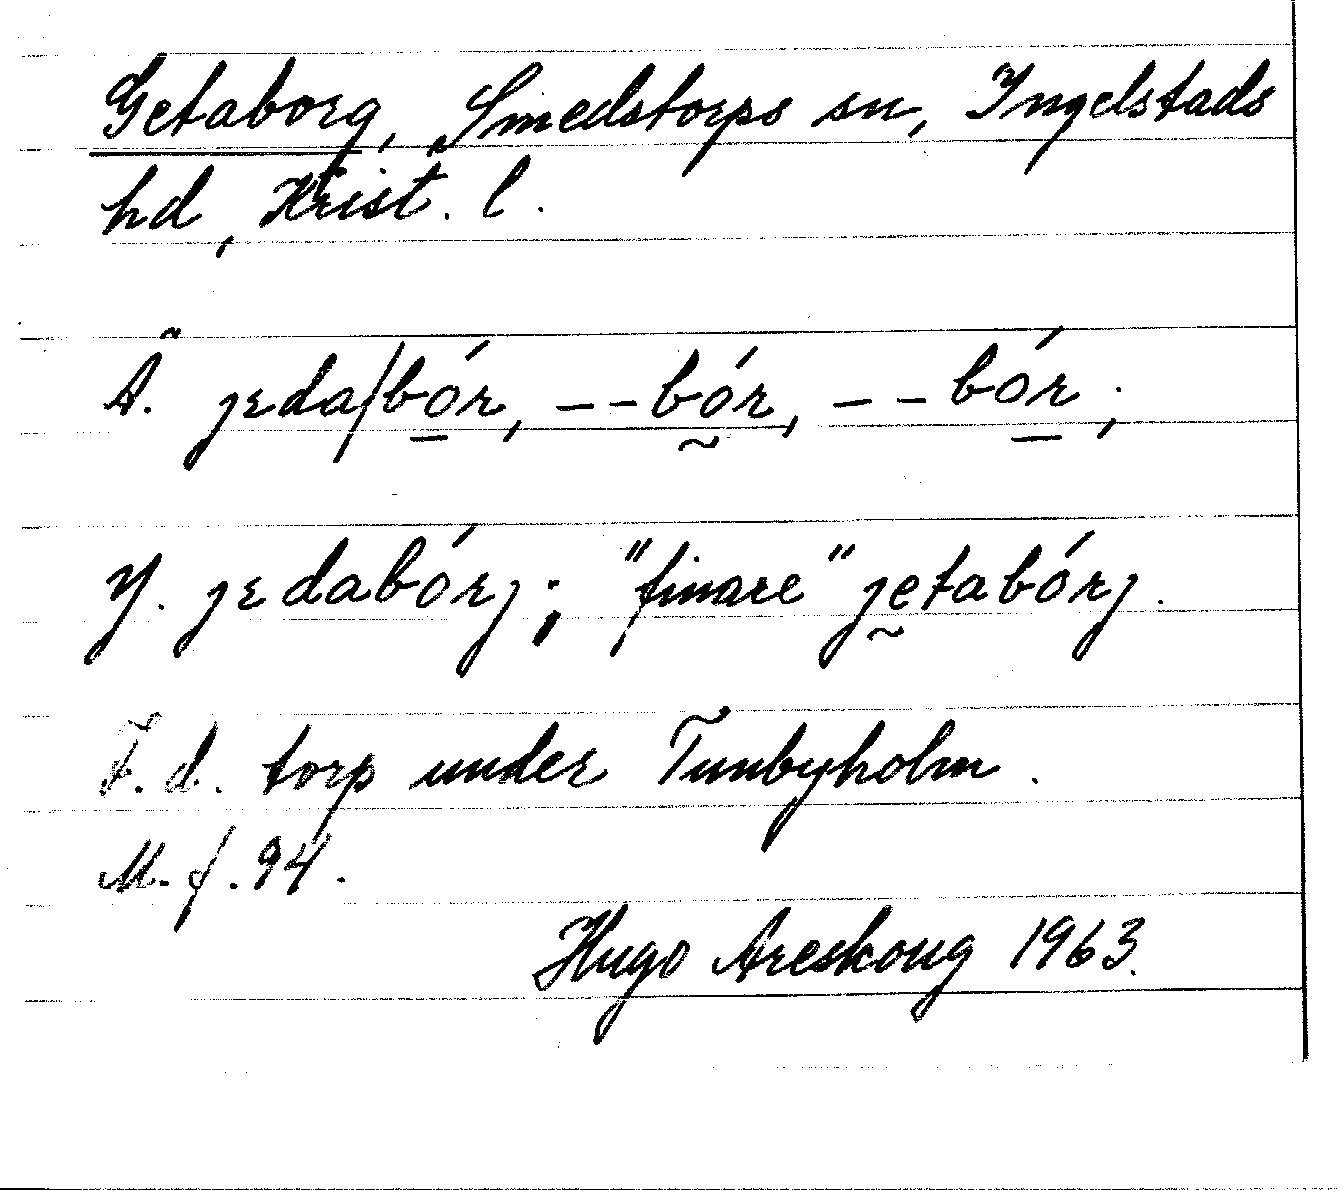 Getaborg, Smedstorps sn, Ingelstads
hd, Krist. l.
Ä. jɛda/bór, --bór, --bór;
Y. jɛdabórj; "finare" jetabórj.
F.d. torp under Tunbyholm.
M. f. 94.
Hugo Areskoug 1963.